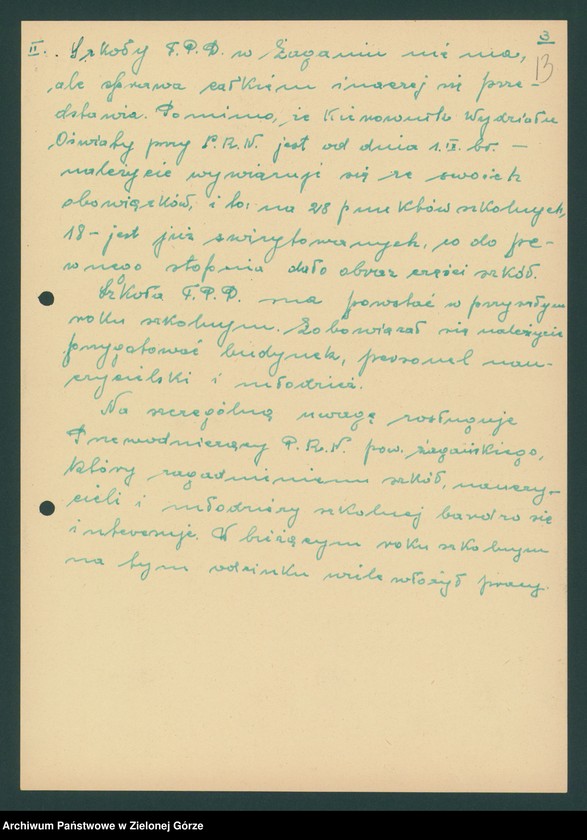 3
13
II. Szkoły T.P.D. w Żaganiu nie ma,
ale sprawa całkiem inaczej się prze-
dstawia. Pomimo, że Kierownik Wydziału
Oświaty przy P.R.N. jest od dnia 1.IX. br. –
należycie wywiązuje się ze swoich
obowiązków, i to: na 28 punktów szkolnych,
18 – jest już zwizytowanych, co do pe-
wnego stopnia dało obraz części szkół.
Szkoła T.P.D. ma powstać w przyszłym
roku szkolnym. Zobowiązał się należycie
przygotować budynek, personel nau-
czycielski i młodzież.
Na szczególną uwagę zasługuje
Przewodniczący P.R.N. pow. żagańskiego,
który zagadnieniem szkół, nauczy-
cieli i młodzieży szkolnej bardzo się
interesuje. W bieżącym roku szkolnym
na tym odcinku wiele włożył pracy.
Archiwum Państwowe w Zielonej Górze